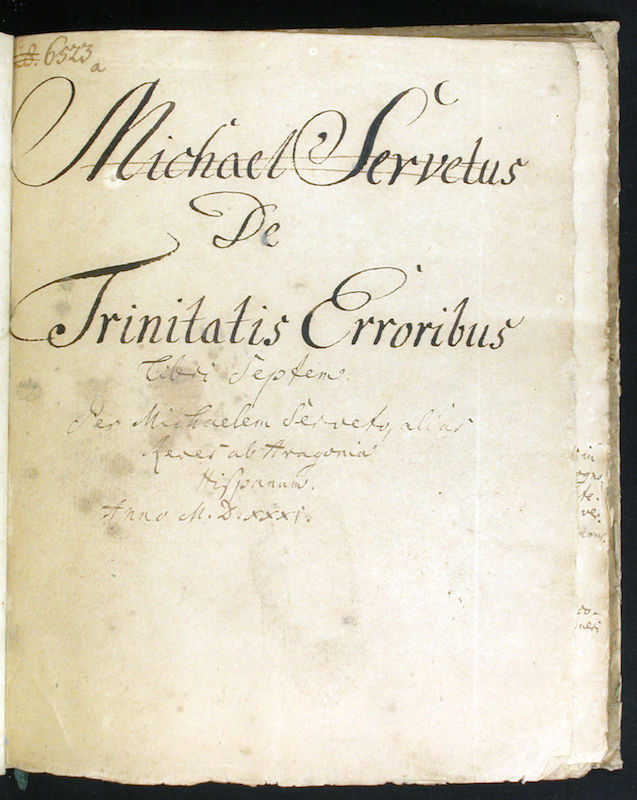 6523
a
Michael Servetus
De
Trinitatis Erroribus
Libri Septem.
Per Michaelem Serveto, alias
Reves ab Aragonia
Hispanum.
Anno M. D. xxxi.
in
te.
ver.
co-